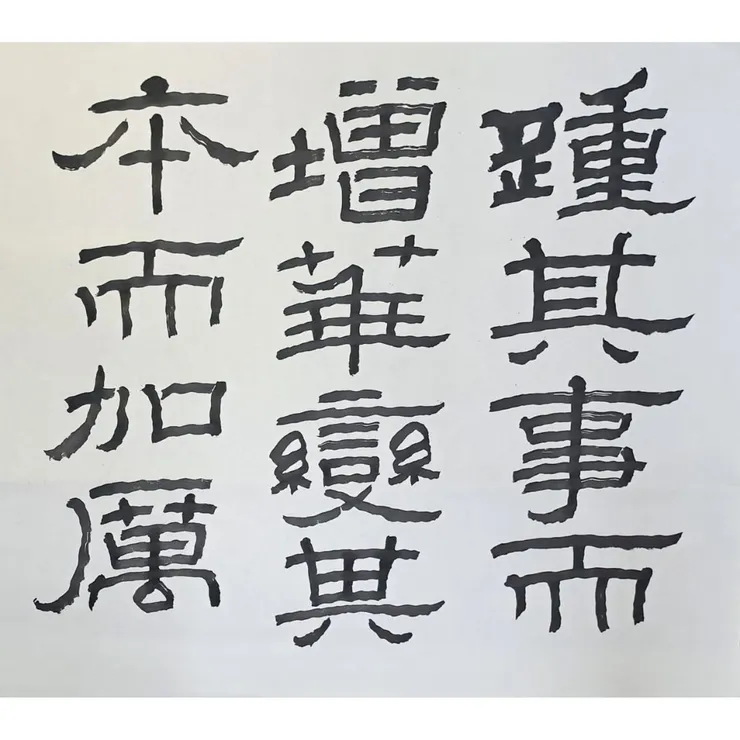 踵其事而
增華變其
本而加厲